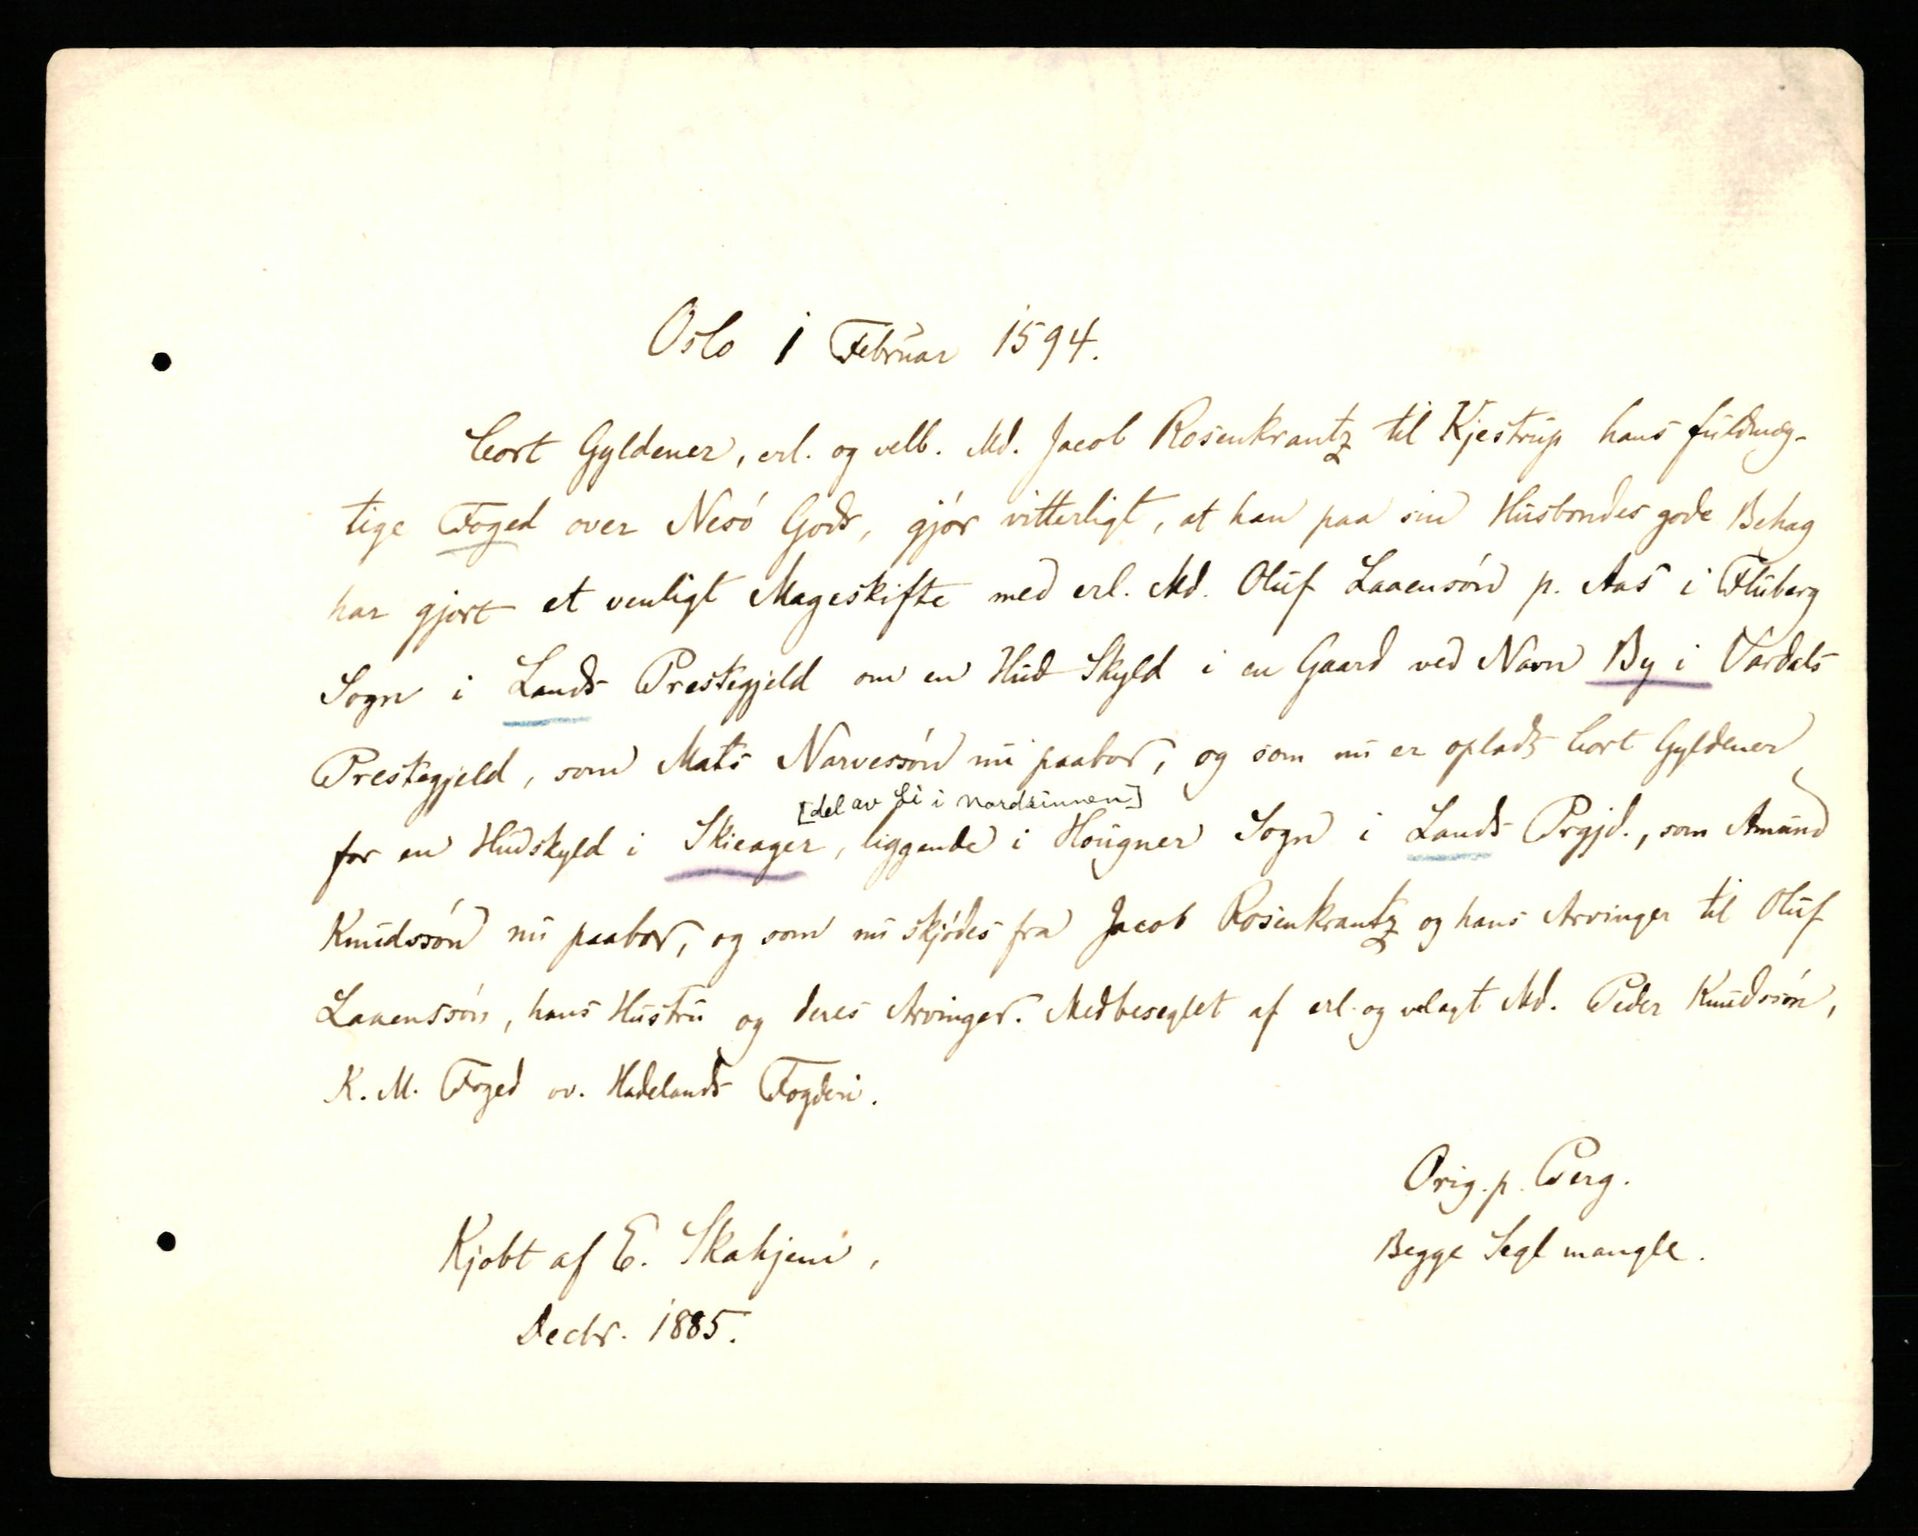 Oslo 1 Februar 1594.
Cort Gyldener, erl. og velb. Md. Jacob Rosenkrantz til Kjestrup hans fuldmæg-
tige Foged over Nesö Gods, gjör vitterligt, at han paa sin Husbondes gode Behag
har gjort et venligt Mageskifte med erl. Md. Oluf Laaensön p. Aas i Fluberg
Sogn i Lands Prestegjeld om en Hud Skyld i en Gaard ved Navn By i Vardals
Prestegjeld, som Mats Narvessön nu paabor, og som nu er oplads Cort Gyldener
[del av Li i Nordsinnen]
for en Hudskyld i Skieager, liggende i Hougner Sogn i Lands Prgjd., som Amund
Knudssön nu paabor, og som nu skjödes fra Jacob Rosenkrantz og hans Arvinger til Oluf
Laaenssön, hans Hustru og deres Arvinger. Medbeseglet af erl. og velagt Md. Peder Knudssön,
K. M. Foged ov. Hadelands Fogderi.
Orig. p. Perg.
Begge Segl mangle.
Kjobt af E. Skahjem,
Decbr. 1885.